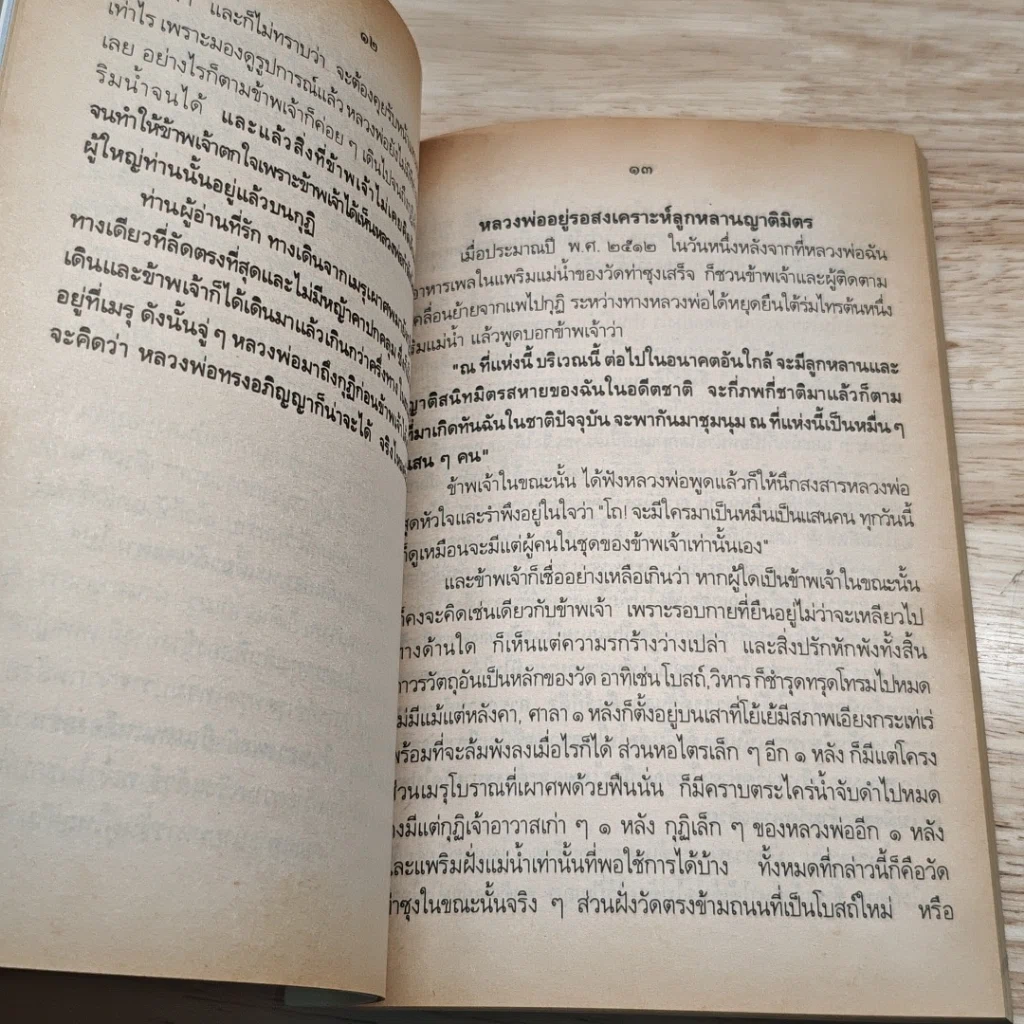 ๑๒
และก็ไม่ทราบว่า จะต้องคุยรับหน้า
เท่าไร เพราะมองดูรูปการณ์แล้ว หลวงพ่อยังไม่
เลย อย่างไรก็ตามข้าพเจ้าก็ค่อย ๆ เดินไปจนถึง
ริมน้ำจนได้ และแล้วสิ่งที่ข้าพเจ้าไม่เคย
จนทำให้ข้าพเจ้าตกใจเพราะข้าพเจ้าได้เห็นหลวงพ่อ
ผู้ใหญ่ท่านนั้นอยู่แล้วบนกุฏิ
ท่านผู้อ่านที่รัก ทางเดินจากเมรุเผาศพ
ทางเดียวที่ลัดตรงที่สุดและไม่มีหญ้าคาปกคลุม
เดินและข้าพเจ้าก็ได้เดินมาแล้วเกินกว่าครึ่งทาง
อยู่ที่เมรุ ดังนั้นจู่ ๆ หลวงพ่อมาถึงกุฏิก่อนข้าพเจ้า
จะคิดว่า หลวงพ่อทรงอภิญญาก็น่าจะได้
๑๓
หลวงพ่ออยู่รอสงเคราะห์ลูกหลานญาติมิตร
เมื่อประมาณปี พ.ศ. ๒๕๑๒ ในวันหนึ่งหลังจากที่หลวงพ่อฉัน
อาหารเพลในแพริมแม่น้ำของวัดท่าซุงเสร็จ ก็ชวนข้าพเจ้าและผู้ติดตาม
เคลื่อนย้ายจากแพไปกุฏิ ระหว่างทางหลวงพ่อได้หยุดยืนใต้ร่มไทรต้นหนึ่ง
ริมแม่น้ำ แล้วพูดบอกข้าพเจ้าว่า
"ณ ที่แห่งนี้ บริเวณนี้ ต่อไปในอนาคตอันใกล้ จะมีลูกหลานและ
ญาติสนิทมิตรสหายของฉันในอดีตชาติ จะกี่ภพกี่ชาติมาแล้วก็ตาม
ที่มาเกิดทันฉันในชาติปัจจุบัน จะพากันมาชุมนุม ณ ที่แห่งนี้เป็นหมื่น ๆ
แสน ๆ คน"
ข้าพเจ้าในขณะนั้น ได้ฟังหลวงพ่อพูดแล้วก็ให้นึกสงสารหลวงพ่อ
สุดหัวใจและรำพึงอยู่ในใจว่า "โถ! จะมีใครมาเป็นหมื่นเป็นแสนคน ทุกวันนี้
ก็ดูเหมือนจะมีแต่ผู้คนในชุดของข้าพเจ้าเท่านั้นเอง"
และข้าพเจ้าก็เชื่ออย่างเหลือเกินว่า หากผู้ใดเป็นข้าพเจ้าในขณะนั้น
ก็คงจะคิดเช่นเดียวกับข้าพเจ้า เพราะรอบกายที่ยืนอยู่ไม่ว่าจะเหลียวไป
ทางด้านใด ก็เห็นแต่ความรกร้างว่างเปล่า และสิ่งปรักหักพังทั้งสิ้น
ถาวรวัตถุอันเป็นหลักของวัด อาทิเช่นโบสถ์,วิหาร ก็ชำรุดทรุดโทรมไปหมด
ไม่มีแม้แต่หลังคา, ศาลา ๑ หลังก็ตั้งอยู่บนเสาที่โย้เย้มีสภาพเอียงกระเท่เร่
พร้อมที่จะล้มพังลงเมื่อไรก็ได้ ส่วนหอไตรเล็ก ๆ อีก ๑ หลัง ก็มีแต่โครง
ส่วนเมรุโบราณที่เผาศพด้วยฟืนนั่น ก็มีคราบตระไคร่น้ำจับดำไปหมด
คงมีแต่กุฏิเจ้าอาวาสเก่า ๆ ๑ หลัง กุฏิเล็ก ๆ ของหลวงพ่ออีก ๑ หลัง
และแพริมฝั่งแม่น้ำเท่านั้นที่พอใช้การได้บ้าง ทั้งหมดที่กล่าวนี้ก็คือวัด
ท่าซุงในขณะนั้นจริง ๆ ส่วนฝั่งวัดตรงข้ามถนนที่เป็นโบสถ์ใหม่ หรือ